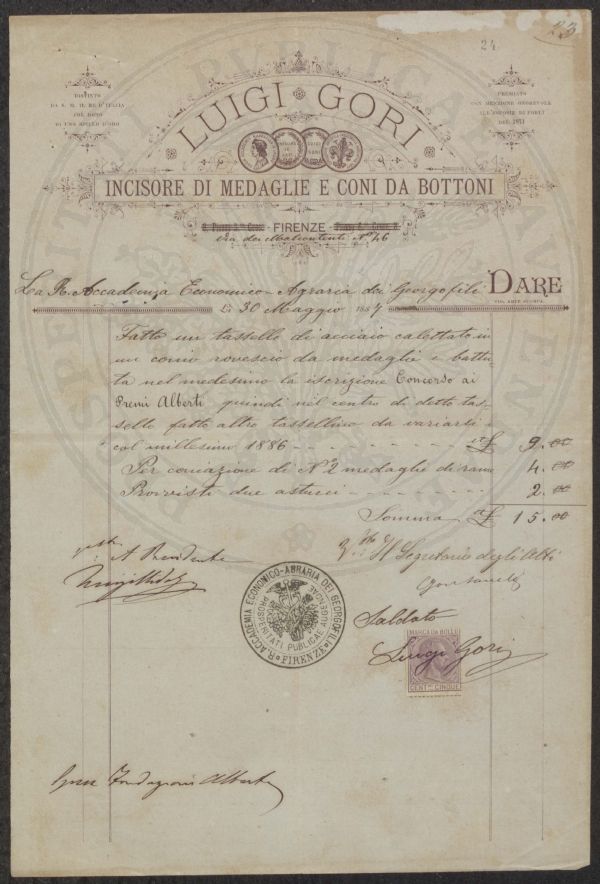 23
24
DISTINTO
DA S. M. IL RE D'ITALIA
COL DONO
DI UNO SPILLO D'ORO
PREMIATO
CON MENZIONE ONOREVOLE
ALL'ESPOSIZ. DI FORLÌ
DEL 1871
LUIGI GORI
INCISORE DI MEDAGLIE E CONI DA BOTTONI
FIRENZE
Via dei Malcontenti No 46
La R. Accademia Economico-Agraria dei Georgofili DARE
Li 30 Maggio 1887
Fatto un tassello di acciaio calettato in
un conio rovescio da medaglie e battu-
ta nel medesimo la iscrizione Concorso ai
Premi Alberti quindi nel centro di detto tas-
sello fatto altro tassellino da variarsi
col millesimo 1886 - - - - - - - - - - £ 9.00
Per coniazione di No 2 medaglie di rame 4.00
Provvisti due astucci - - - - - - 2.00
Somma £ 15.00
Il Presidente
Il Segretario degli Atti
R. ACCADEMIA ECONOMICO-AGRARIA DEI GEORGOFILI
FIRENZE
PROSPERITATI PUBLICAE AUGENDAE
Saldato
MARCA DA BOLLO
Luigi Gori
CENT.MI CINQUE
Fondazione Alberti